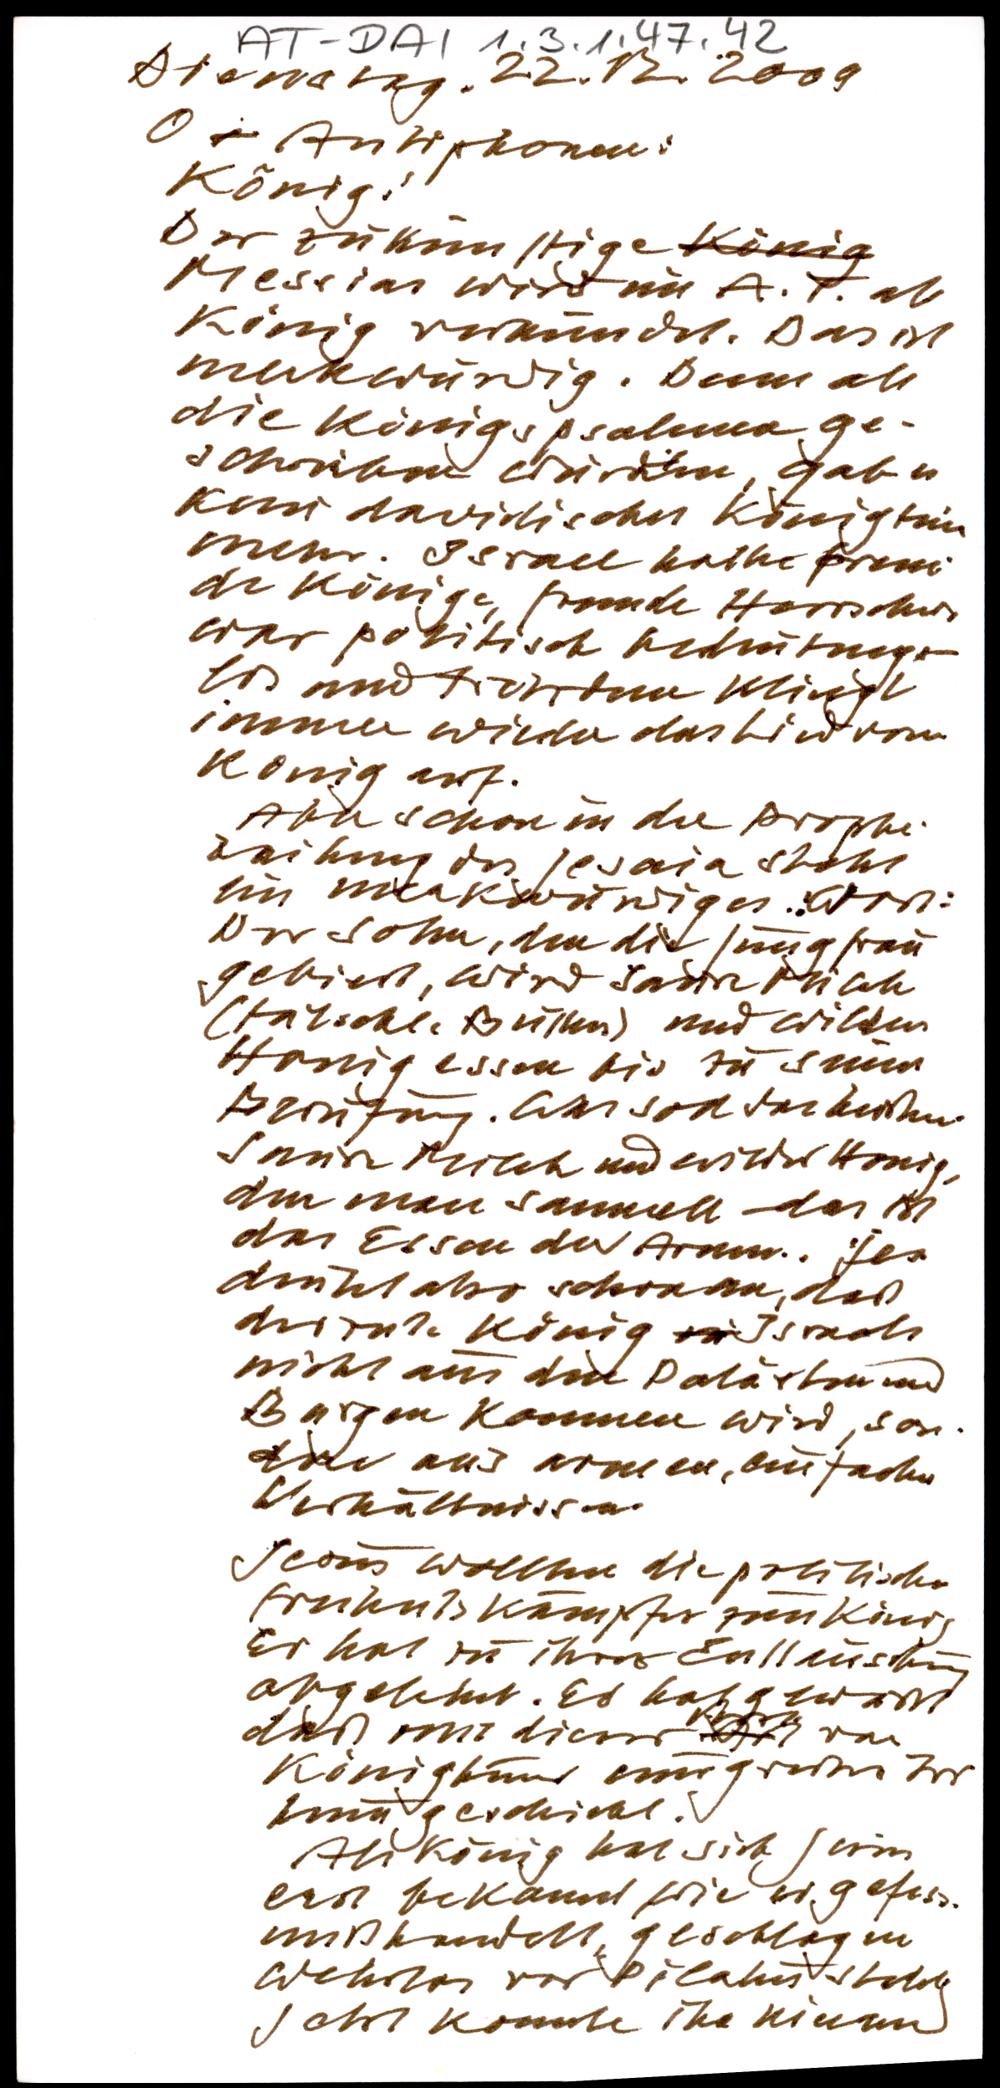 AT-DAI 1.3.1.47.42
Dienstag. 22.12.2009
O Antiphonen:
König!
Der zukünftige König
Messias wird im A.T. als
König verkündet. Das ist
merkwürdig. Denn als
die Königspsalmen ge-
schrieben wurden, gab es
kein davidisches Königtum
mehr. Israel hatte frem
de Könige, fremde Herrscher
war politisch bedeutungs-
los und trotzdem klingt
immer wieder das Lied vom
König auf.
Aber schon in der Prophe
zeihung des Jesaia steht
ein merkwürdiges Wort:
Der Sohn, den die Jungfrau
gebiert, wird saure Milch
(tatsächl. Butter) und wilden
Honig essen bis zu seiner
Berufung. Was soll das heißen.
Saure Milch und wilder Honig,
den man sammelt - das ist
das Essen der Armen. Jes
deutet also schon an, daß
der rechte König Israels
nicht aus den Palästen und
Burgen kommen wird, son-
dern aus armen, einfachen
Verhältnissen.
Jesus wollten die politischen
Freiheitskämpfer zum König
Er hat zu ihrer Enttäuschung
abgelehnt. Er hat gewußt
daß mit dieser von
Königtum
geschieht.
Als König hat sich Jesus
erst bekannt, wie er gefess.
mißhandelt, geschlagen
wehrlos vor Pilatus stand
Jetzt konnte ihn niemand